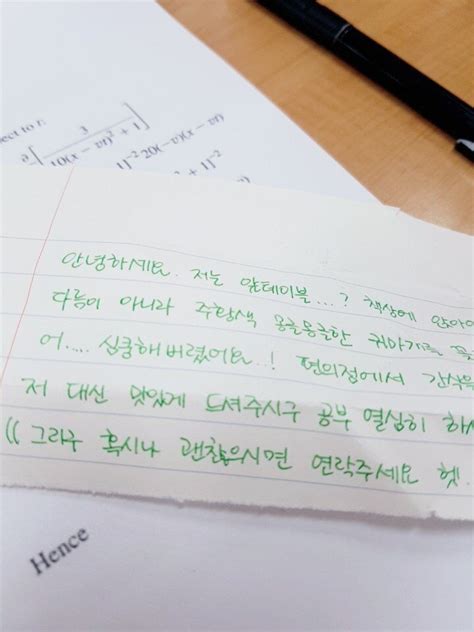 ect to t:
3
∂[10(x − vt)² + 1]
1]⁻²20(−v)(x − vt)
² + 1]⁻²
안녕하세요. 저는 앞테이블...? 책상에
다름이 아니라 주황색 몽글몽글한 귀마개를
어..... 심쿵해버렸어요..! 편의점에서 간식을
저 대신 맛있게 드셔주시구 공부 열심히
((그리구 혹시나 괜찮으시면 연락주세요 헷.
Hence